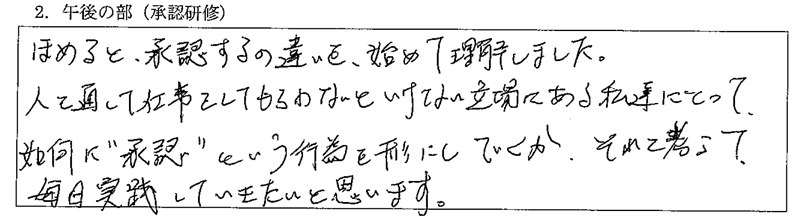 2. 午後の部（承認研修）
ほめると、承認するの違いを、始めて理解しました。
人を通して仕事をしてもらわないといけない立場にある私達にとって、
如何に"承認"という行為を形にしていくか、それを考えて、
毎日実践していきたいと思います。